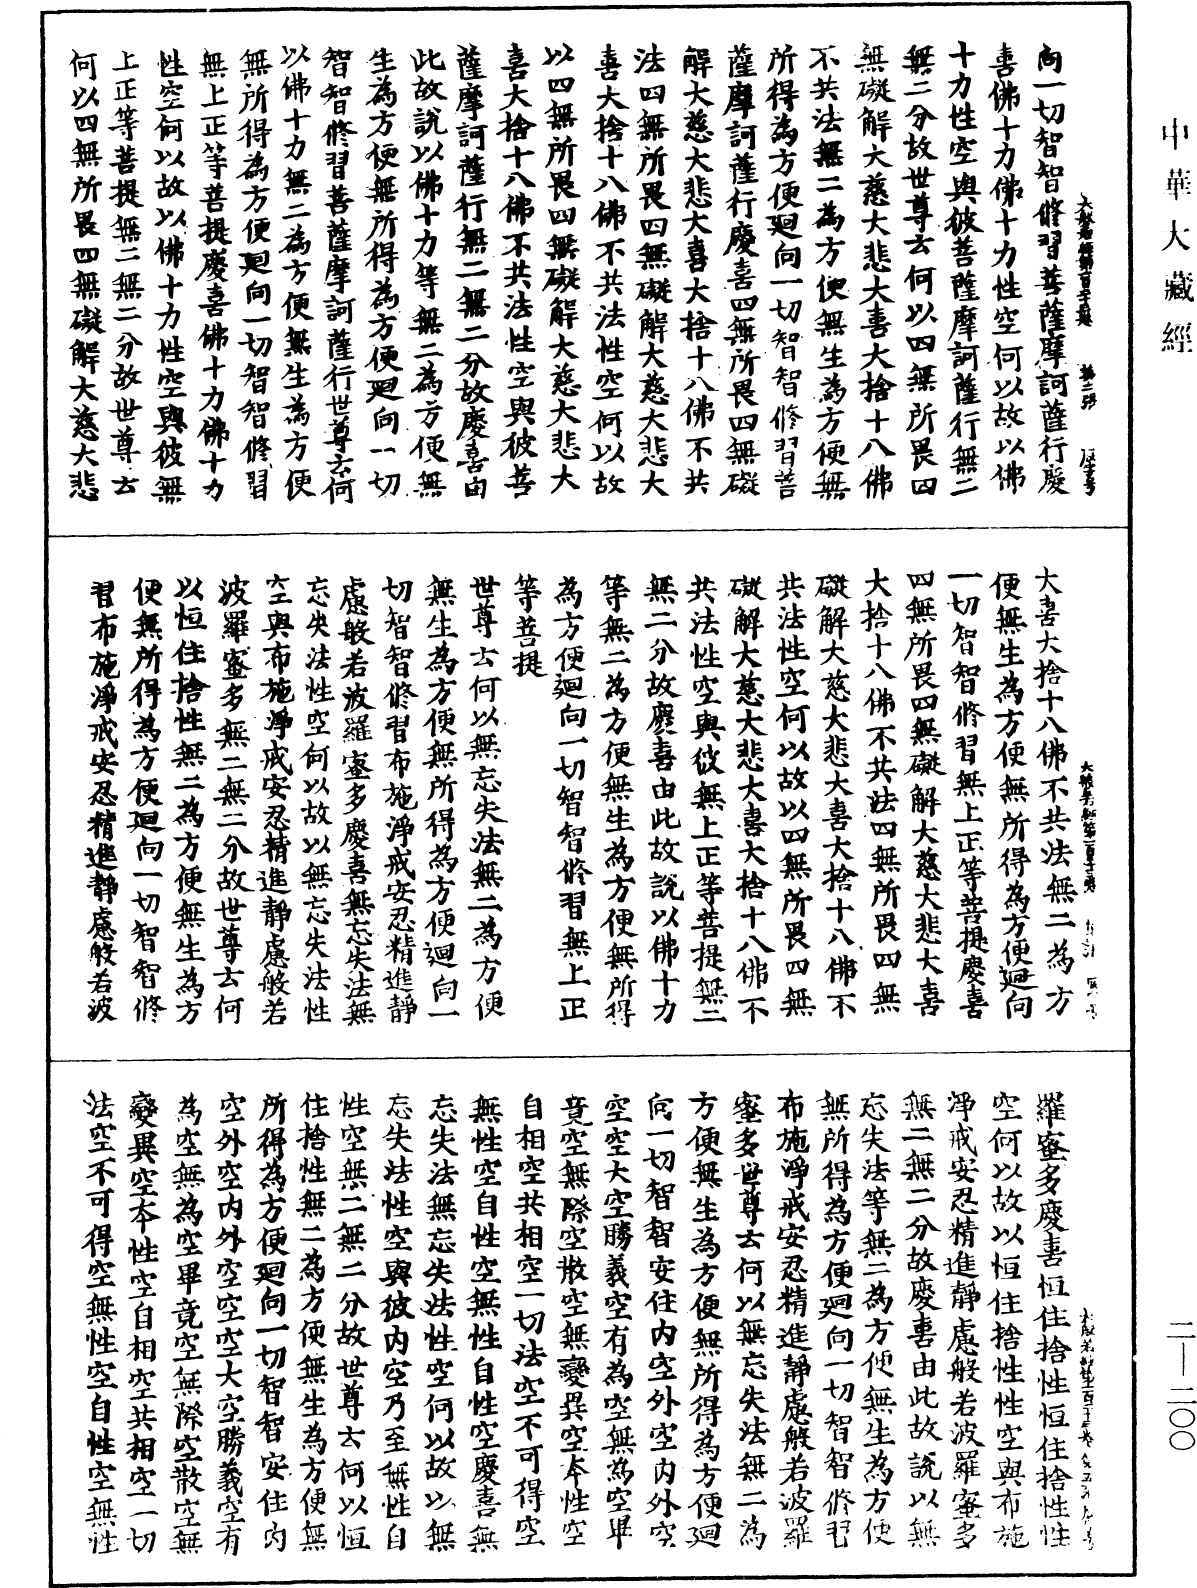 中華大藏經
向一切智智修習菩薩摩訶薩行慶
喜佛十力佛十力性空何以故以佛
十力性空與彼菩薩摩訶薩行無二
無二分故世尊云何以四無所畏四
無礙解大慈大悲大喜大捨十八佛
不共法無二為方便無生為方便無
所得為方便迴向一切智智修習菩
薩摩訶薩行慶喜四無所畏四無礙
解大慈大悲大喜大捨十八佛不共
法四無所畏四無礙解大慈大悲大
喜大捨十八佛不共法性空何以故
以四無所畏四無礙解大慈大悲大
喜大捨十八佛不共法性空與彼菩
薩摩訶薩行無二無二分故慶喜由
此故說以佛十力等無二為方便無
生為方便無所得為方便迴向一切
智智修習菩薩摩訶薩行世尊云何
以佛十力無二為方便無生為方便
無所得為方便迴向一切智智修習
無上正等菩提慶喜佛十力佛十力
性空何以故以佛十力性空與彼無
上正等菩提無二無二分故世尊云
何以四無所畏四無礙解大慈大悲
大喜大捨十八佛不共法無二為方
便無生為方便無所得為方便迴向
一切智智修習無上正等菩提慶喜
四無所畏四無礙解大慈大悲大喜
大捨十八佛不共法四無所畏四無
礙解大慈大悲大喜大捨十八佛不
共法性空何以故以四無所畏四無
礙解大慈大悲大喜大捨十八佛不
共法性空與彼無上正等菩提無二
無二分故慶喜由此故說以佛十力
等無二為方便無生為方便無所得
為方便迴向一切智智修習無上正
等菩提
世尊云何以無忘失法無二為方便
無生為方便無所得為方便迴向一
切智智修習布施淨戒安忍精進靜
慮般若波羅蜜多慶喜無忘失法無
忘失法性空何以故以無忘失法性
空與布施淨戒安忍精進靜慮般若
波羅蜜多無二無二分故世尊云何
以恒住捨性無二為方便無生為方
便無所得為方便迴向一切智智修
習布施淨戒安忍精進靜慮般若波
羅蜜多慶喜恒住捨性恒住捨性性
空何以故以恒住捨性性空與布施
淨戒安忍精進靜慮般若波羅蜜多
無二無二分故慶喜由此故說以無
忘失法等無二為方便無生為方便
無所得為方便迴向一切智智修習
布施淨戒安忍精進靜慮般若波羅
蜜多世尊云何以無忘失法無二為
方便無生為方便無所得為方便迴
向一切智智安住內空外空內外空
空空大空勝義空有為空無為空畢
竟空無際空散空無變異空本性空
自相空共相空一切法空不可得空
無性空自性空無性自性空慶喜無
忘失法無忘失法性空何以故以無
忘失法性空與彼內空乃至無性自
性空無二無二分故世尊云何以恒
住捨性無二為方便無生為方便無
所得為方便迴向一切智智安住內
空外空內外空空空大空勝義空有
為空無為空畢竟空無際空散空無
變異空本性空自相空共相空一切
法空不可得空無性空自性空無性
二—二〇〇